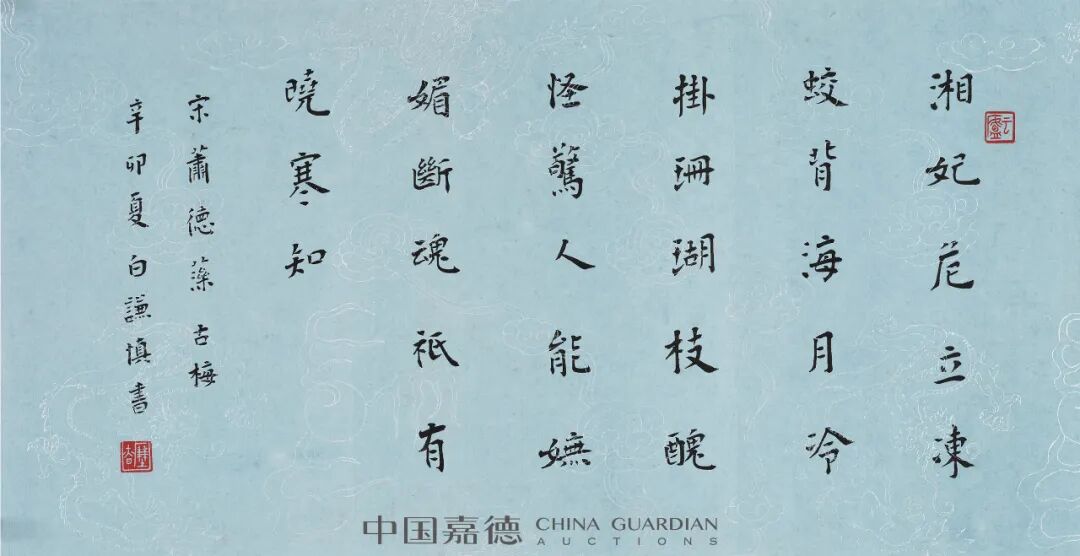 湘妃危立凍
蛟背海月冷
掛珊瑚枝醜
怪驚人能嫵
媚斷魂祇有
曉寒知
宋蕭德藻古梅
辛卯夏白謙慎書
中国嘉德 CHINA GUARDIAN
AUCTIONS